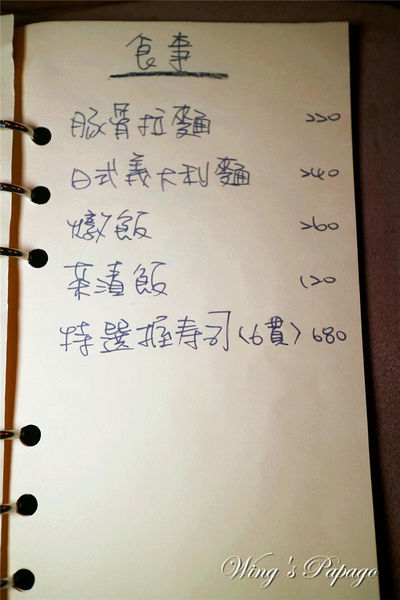 食事
豚骨拉麵 220
日式義大利麵 240
燉飯 260
茶漬飯 120
特選握寿司(6貫) 680
Wing's Papago